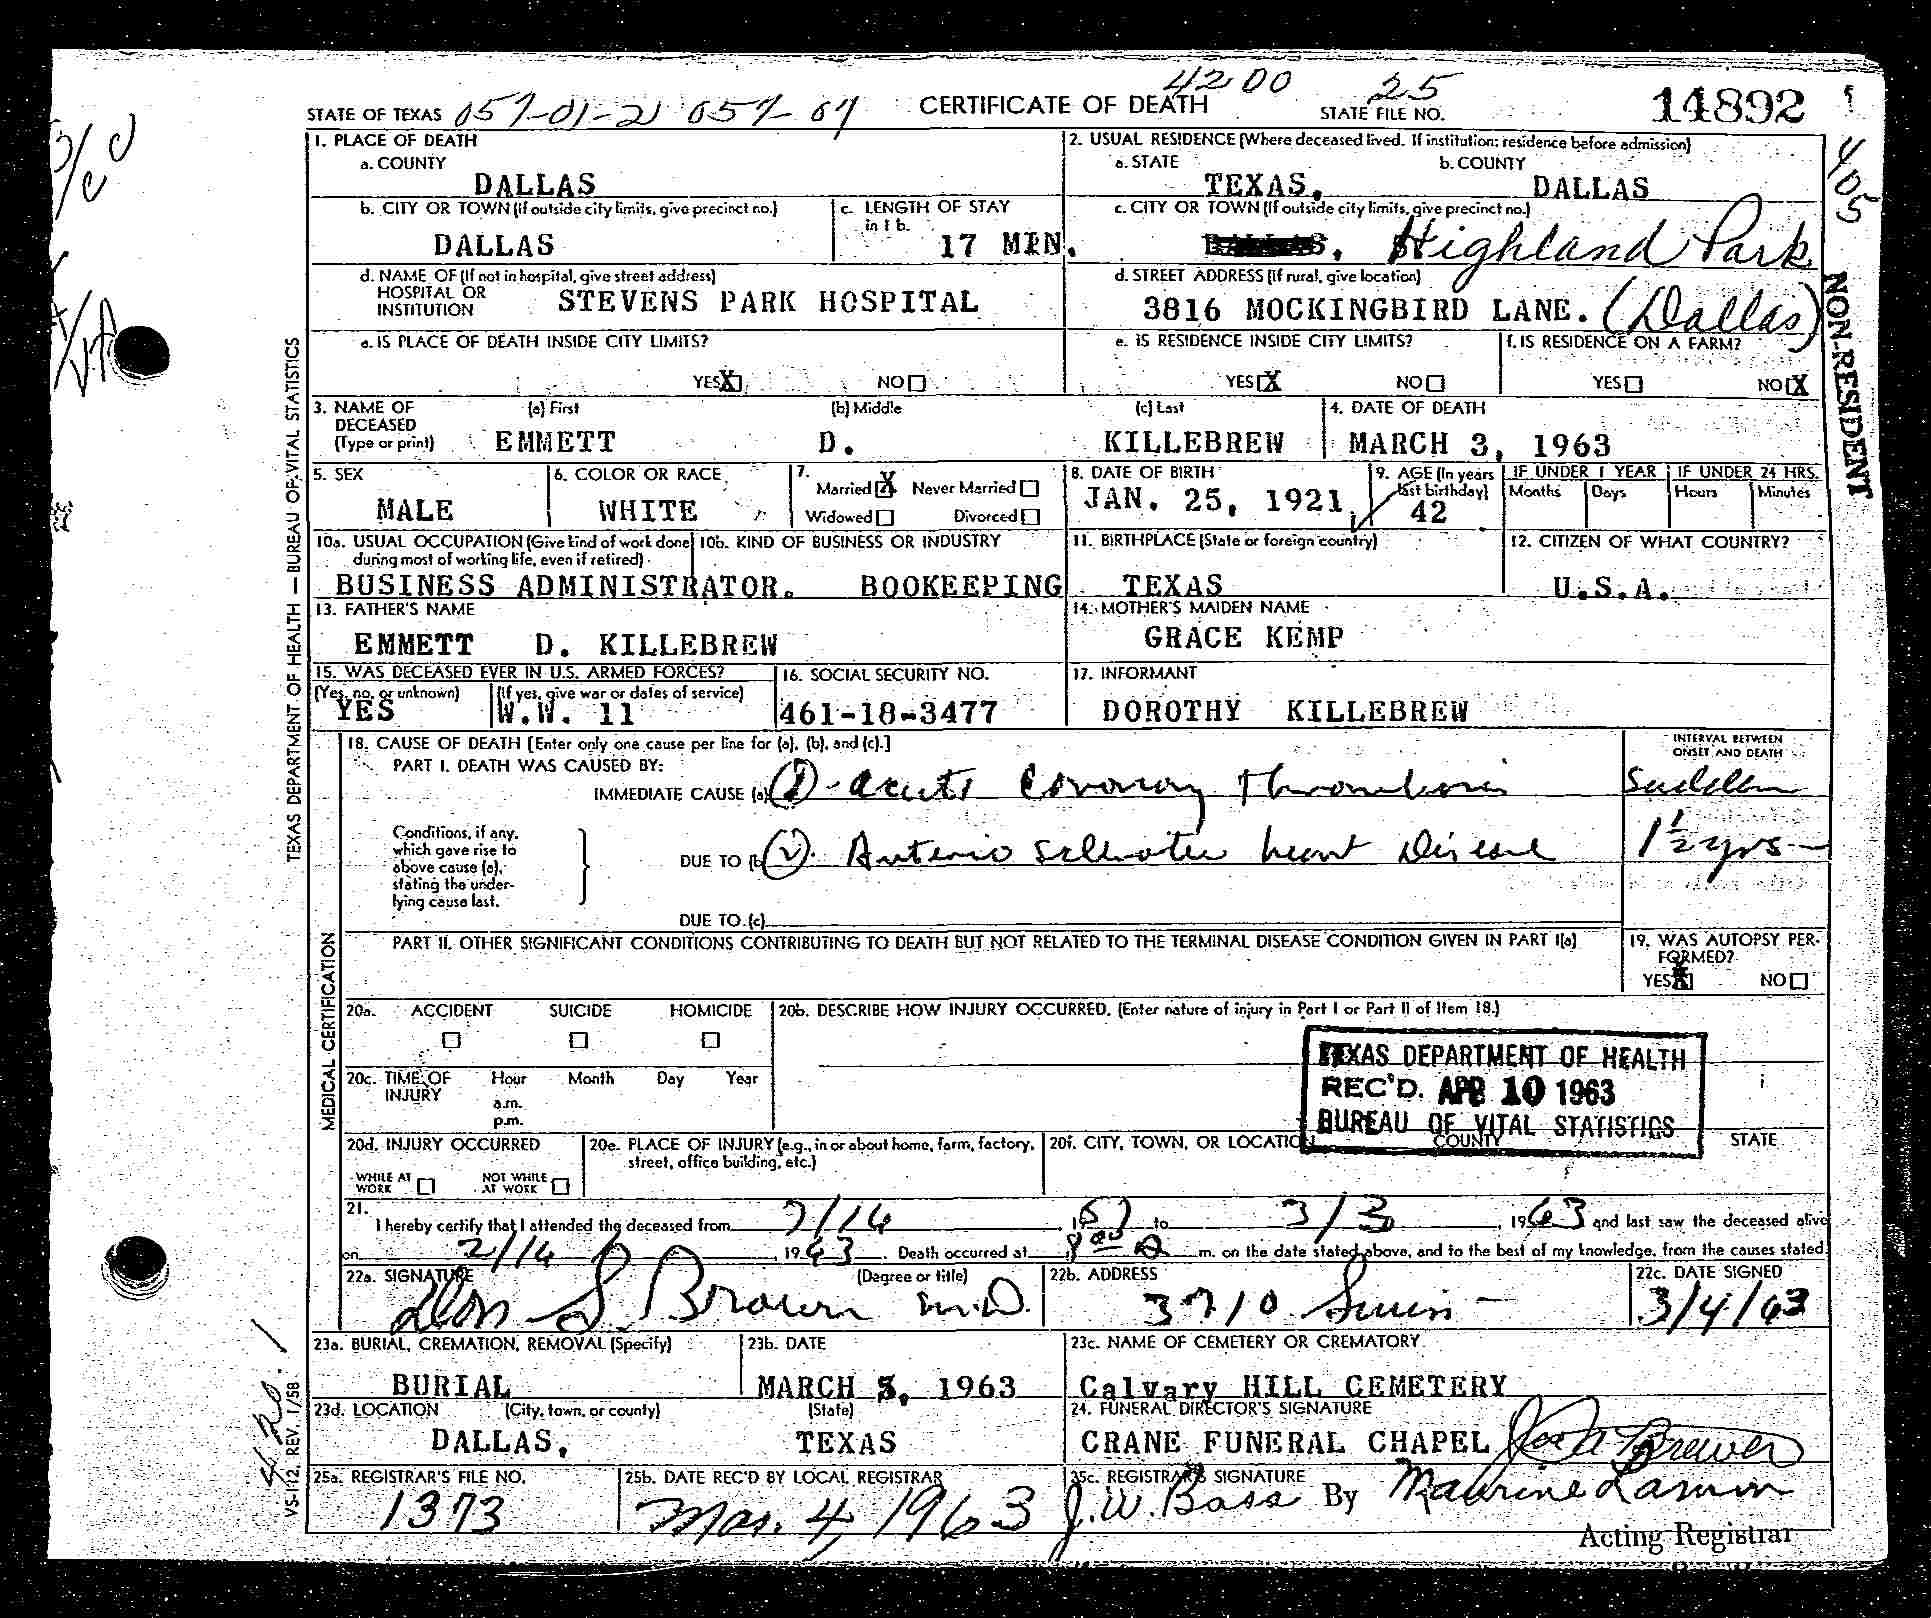 4200 25
STATE OF TEXAS 057-01-21 057-07 CERTIFICATE OF DEATH STATE FILE NO. 14892
1. PLACE OF DEATH
a. COUNTY
DALLAS
2. USUAL RESIDENCE (Where deceased lived. If institution: residence before admission)
a. STATE b. COUNTY
TEXAS, DALLAS
405
b. CITY OR TOWN (If outside city limits, give precinct no.)
DALLAS
c. LENGTH OF STAY
in 1 b.
17 MIN.
c. CITY OR TOWN (If outside city limits, give precinct no.)
DALLAS, Highland Park
d. NAME OF (If not in hospital, give street address)
HOSPITAL OR
INSTITUTION STEVENS PARK HOSPITAL
d. STREET ADDRESS (If rural, give location)
3816 MOCKINGBIRD LANE. (Dallas)
NON-RESIDENT
e. IS PLACE OF DEATH INSIDE CITY LIMITS?
YES X NO
e. IS RESIDENCE INSIDE CITY LIMITS?
YES X NO
f. IS RESIDENCE ON A FARM?
YES NO X
3. NAME OF
DECEASED
(Type or print)
(a) First (b) Middle (c) Last
EMMETT D. KILLEBREW
4. DATE OF DEATH
MARCH 3, 1963
5. SEX
MALE
6. COLOR OR RACE
WHITE
7.
Married X Never Married
Widowed Divorced
8. DATE OF BIRTH
JAN. 25, 1921
9. AGE (In years
last birthday)
42
IF UNDER 1 YEAR IF UNDER 24 HRS.
Months Days Hours Minutes
10a. USUAL OCCUPATION (Give kind of work done
during most of working life, even if retired)
BUSINESS ADMINISTRATOR.
10b. KIND OF BUSINESS OR INDUSTRY
BOOKEEPING
11. BIRTHPLACE (State or foreign country)
TEXAS
12. CITIZEN OF WHAT COUNTRY?
U.S.A.
13. FATHER'S NAME
EMMETT D. KILLEBREW
14. MOTHER'S MAIDEN NAME
GRACE KEMP
15. WAS DECEASED EVER IN U.S. ARMED FORCES?
(Yes, no, or unknown) (If yes, give war or dates of service)
YES W.W. 11
16. SOCIAL SECURITY NO.
461-18-3477
17. INFORMANT
DOROTHY KILLEBREW
TEXAS DEPARTMENT OF HEALTH — BUREAU OF VITAL STATISTICS
MEDICAL CERTIFICATION
18. CAUSE OF DEATH [Enter only one cause per line for (a), (b), and (c).]
PART I. DEATH WAS CAUSED BY:
INTERVAL BETWEEN
ONSET AND DEATH
IMMEDIATE CAUSE (a) (1) - acute Coronary Thrombosis Sudden
Conditions, if any,
which gave rise to
above cause (a),
stating the under-
lying cause last.
DUE TO (b) (2). Arterio Sclerotic heart Disease 1½ yrs —
DUE TO (c)
PART II. OTHER SIGNIFICANT CONDITIONS CONTRIBUTING TO DEATH BUT NOT RELATED TO THE TERMINAL DISEASE CONDITION GIVEN IN PART I(a)
19. WAS AUTOPSY PER-
FORMED?
YES X NO
20a. ACCIDENT SUICIDE HOMICIDE
20b. DESCRIBE HOW INJURY OCCURRED. (Enter nature of injury in Part I or Part II of Item 18.)
20c. TIME OF
INJURY
Hour Month Day Year
a.m.
p.m.
TEXAS DEPARTMENT OF HEALTH
REC'D. APR 10 1963
BUREAU OF VITAL STATISTICS
20d. INJURY OCCURRED
WHILE AT
WORK
NOT WHILE
AT WORK
20e. PLACE OF INJURY (e.g., in or about home, farm, factory,
street, office building, etc.)
20f. CITY, TOWN, OR LOCATION COUNTY STATE
21.
I hereby certify that I attended the deceased from 7/14, 1957 to 3/3, 1963 and last saw the deceased alive
on 2/14, 1963. Death occurred at m. on the date stated above, and to the best of my knowledge, from the causes stated.
22a. SIGNATURE (Degree or title)
Don S. Brown M.D.
22b. ADDRESS
3710 Swiss -
22c. DATE SIGNED
3/4/63
23a. BURIAL, CREMATION, REMOVAL (Specify)
BURIAL
23b. DATE
MARCH 5, 1963
23c. NAME OF CEMETERY OR CREMATORY
Calvary HILL CEMETERY
23d. LOCATION (City, town, or county) (State)
DALLAS, TEXAS
24. FUNERAL DIRECTOR'S SIGNATURE
CRANE FUNERAL CHAPEL Brewer
25a. REGISTRAR'S FILE NO.
1373
25b. DATE REC'D BY LOCAL REGISTRAR
Mar. 4, 1963
25c. REGISTRAR'S SIGNATURE
J.W. Bass By Maurine
Acting Registrar
VS-112, REV. 1/58
420.1